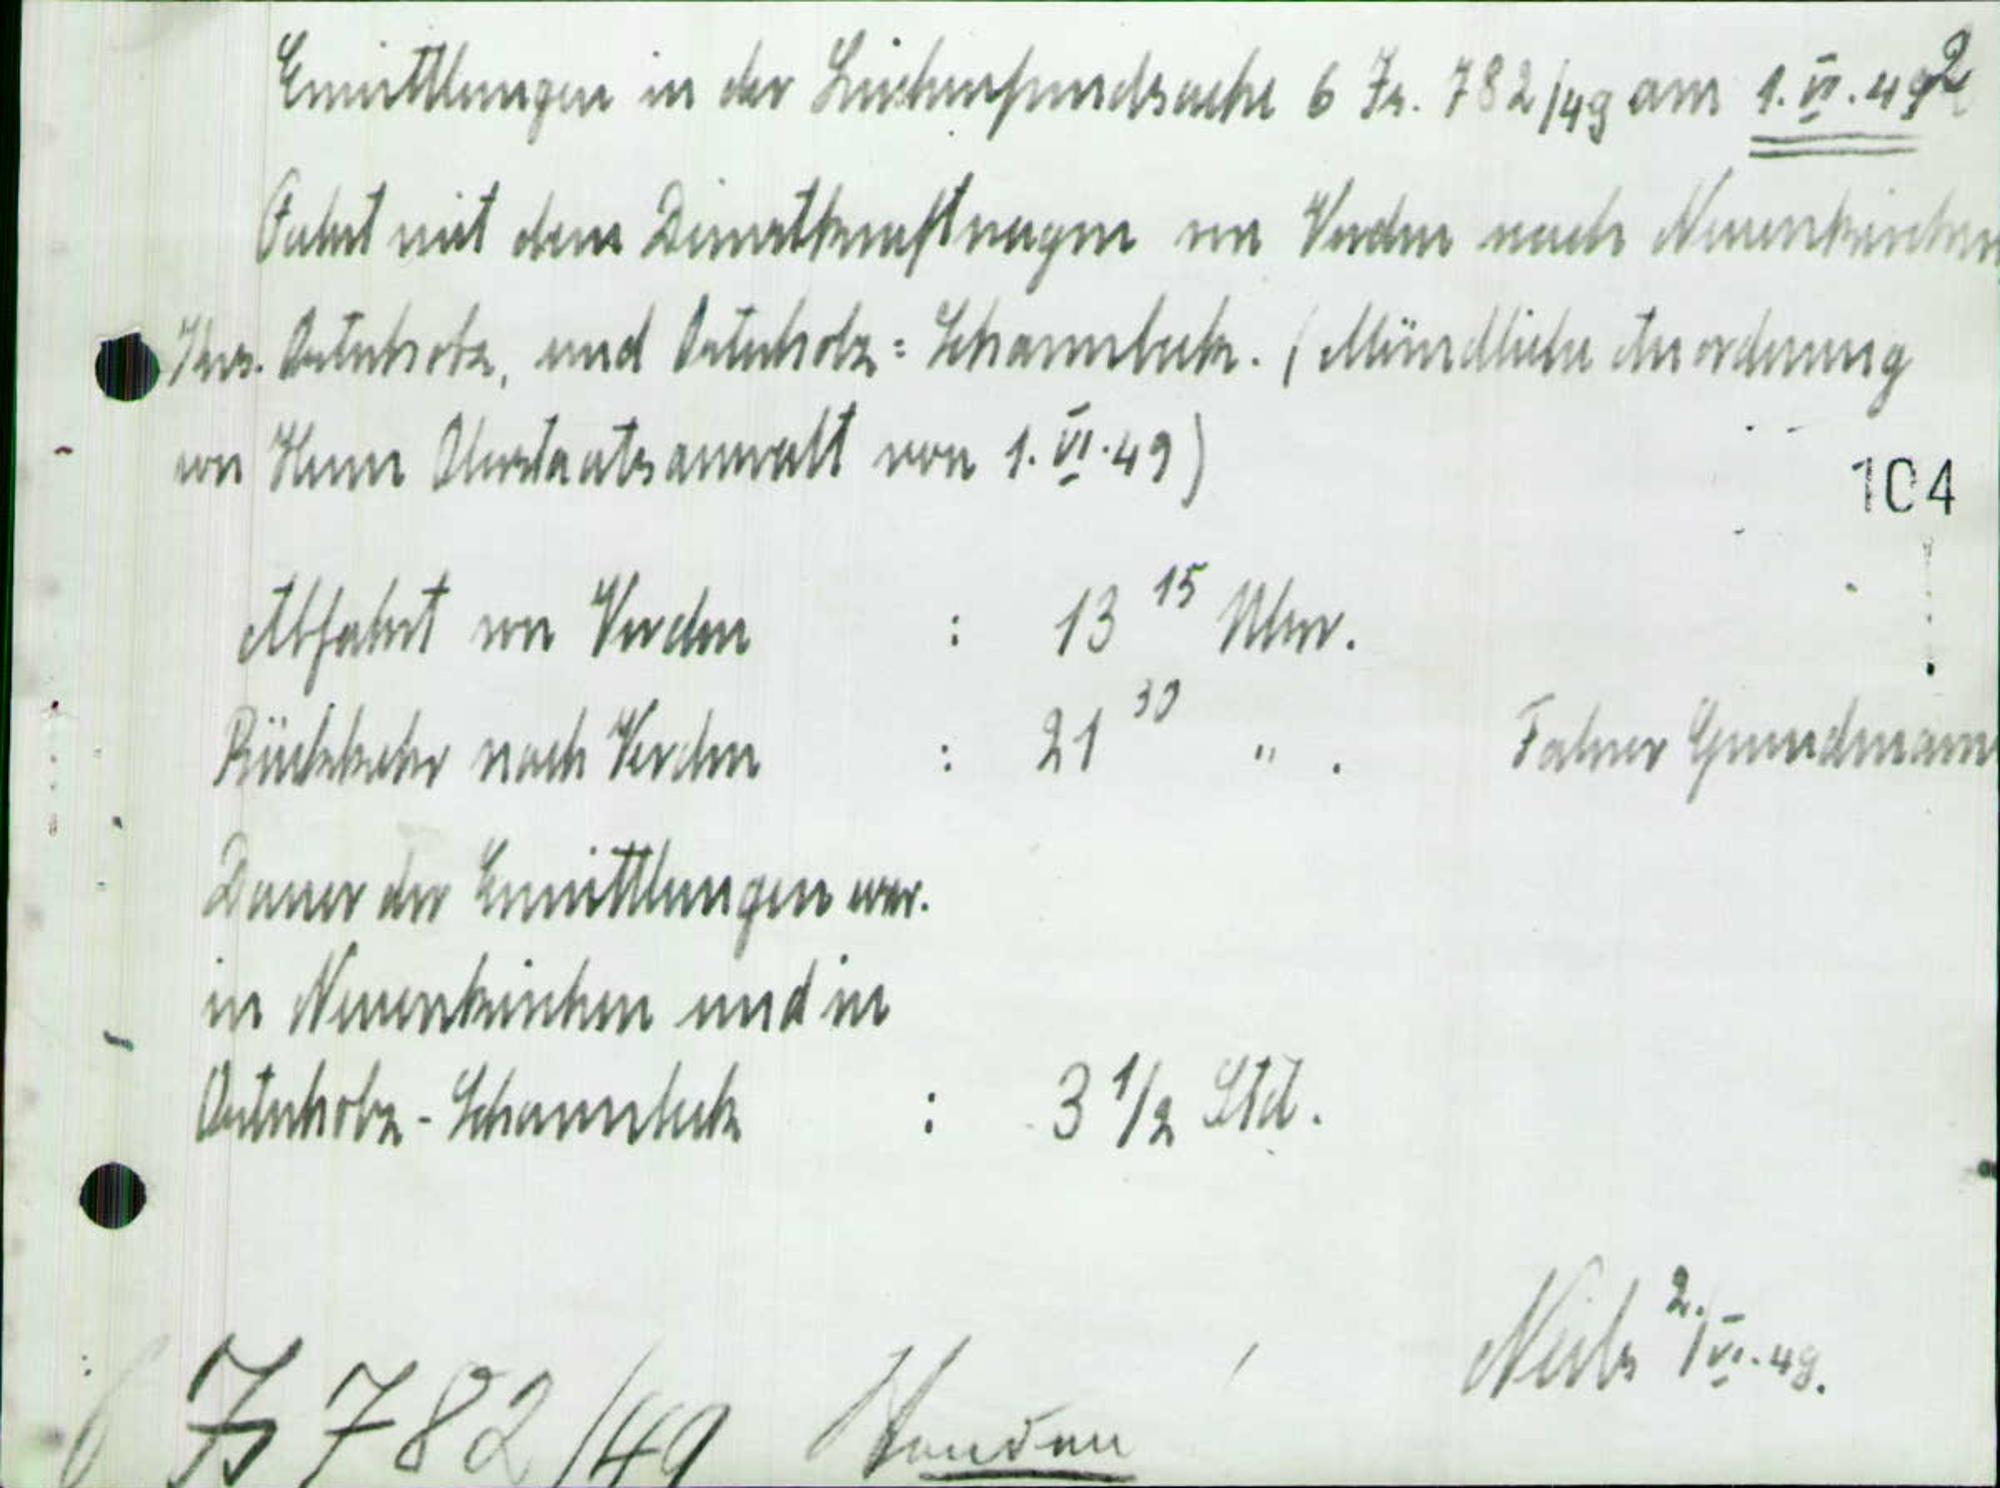 Ermittlungen in der Leichenfundsache 6 Js. 782/49 am 1.VI.49
2
Fahrt mit dem Dienstkraftwagen von Verden nach Neuenkirchen
Krs. Osterholz, und Osterholz=Scharmbeck. (Mündliche Anordnung
von Herrn Oberstaatsanwalt von 1.VI.49)
104
Abfahrt von Verden : 13 15 Uhr.
Rückkehr nach Verden : 21 30 " . Fahrer Grundmann
Dauer der Ermittlungen war.
in Neuenkirchen und in
Osterholz-Scharmbeck : 3 1/2 Std.
2./VI.49.
6 Js 782/49